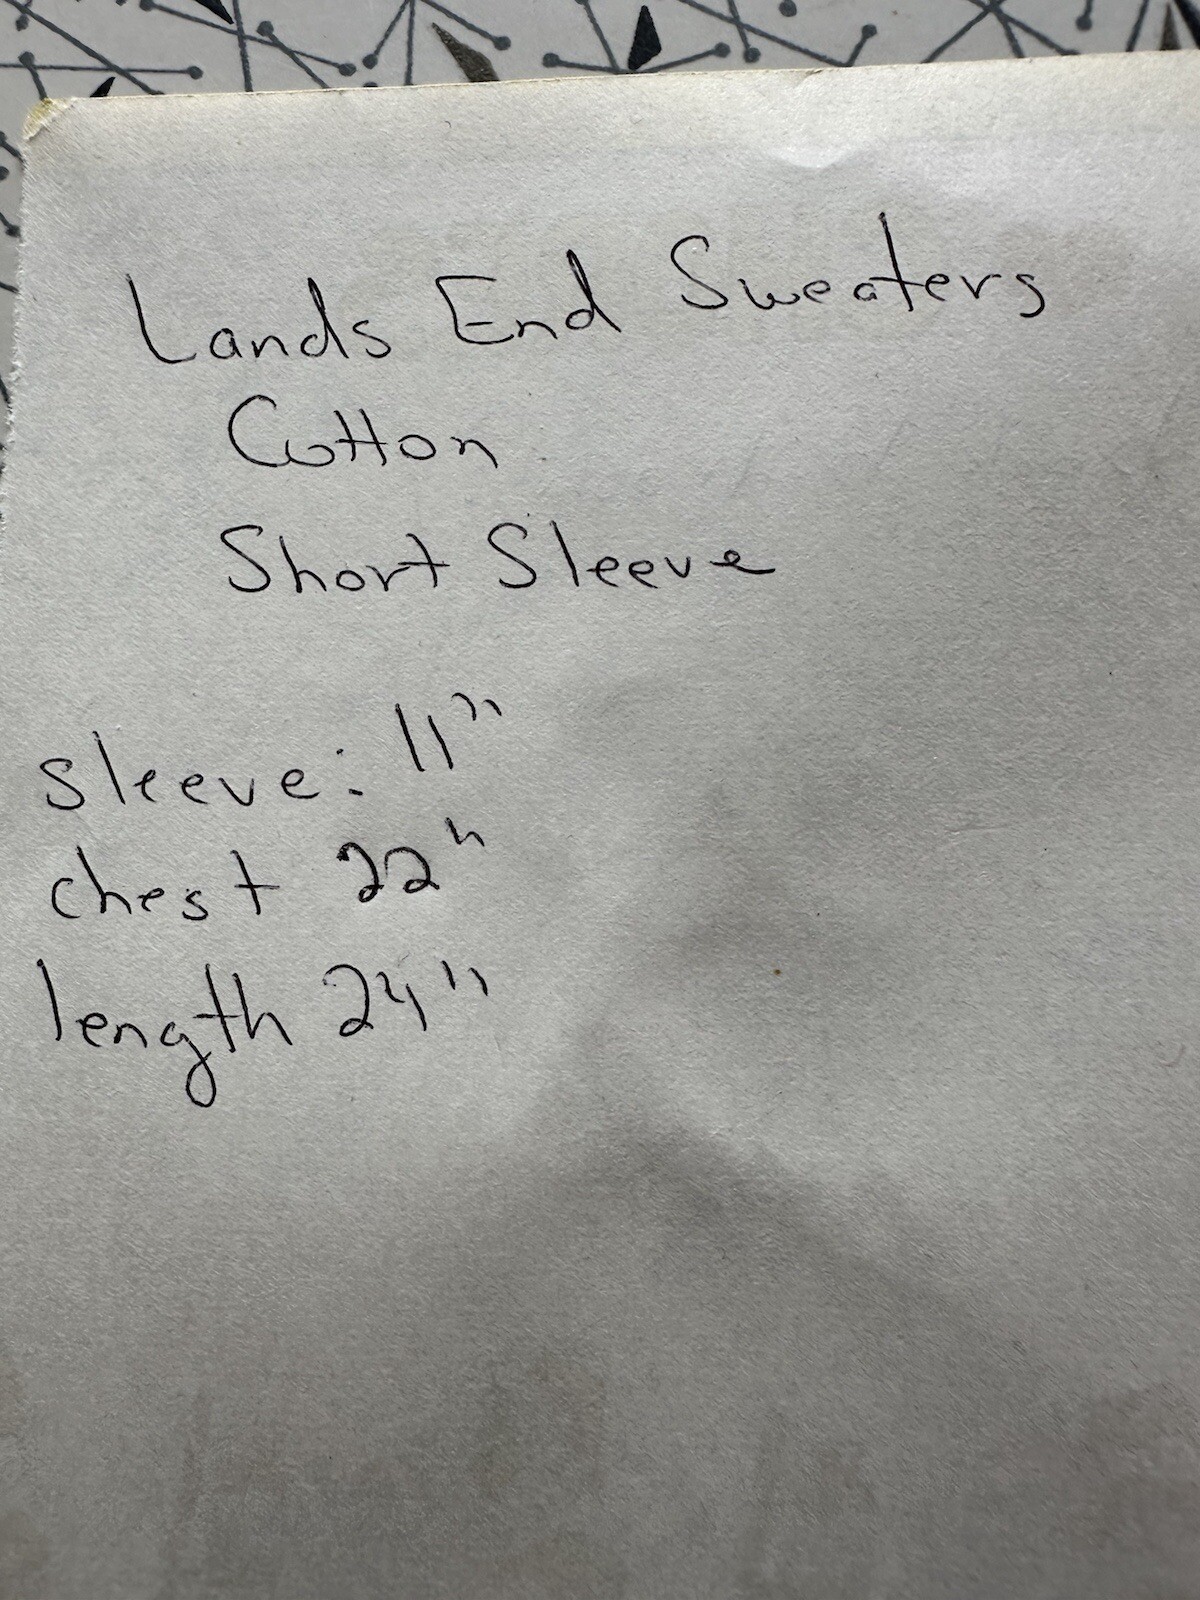 Lands End Sweaters
Cotton
Short Sleeve
sleeve: 11"
chest 22"
length 24"